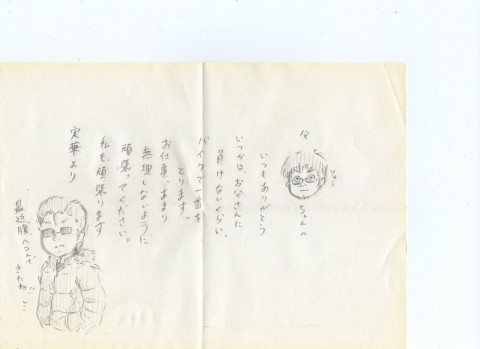 父
ちゃんへ
いつもありがとう
いつかは、お父さんに
負けないくらい、
バイクで一番を
とります。
お仕事、あまり
無理しないように
頑張ってください。
私も、頑張ります
実華より
最近腹へっこんで
きたね…